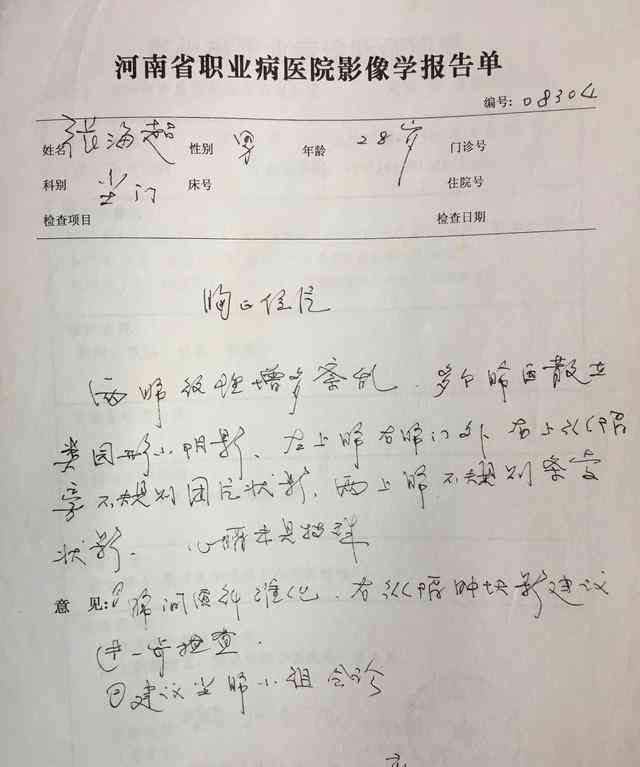 河南省职业病医院影像学报告单
编号: 08304
姓名 张海超 性别 男 年龄 28岁 门诊号
科别 尘门 床号 住院号
检查项目 检查日期
胸正位片
两肺纹理增多紊乱. 多个肺区散在
类园形小阴影、左上肺右肺门外、右上纵隔
旁不规则团片状影, 两上肺不规则条索
状影. 心膈未见特殊
意 见:① 肺间质纤维化. 右纵隔肿块影建议
进一步检查.
②建议尘肺小组会诊